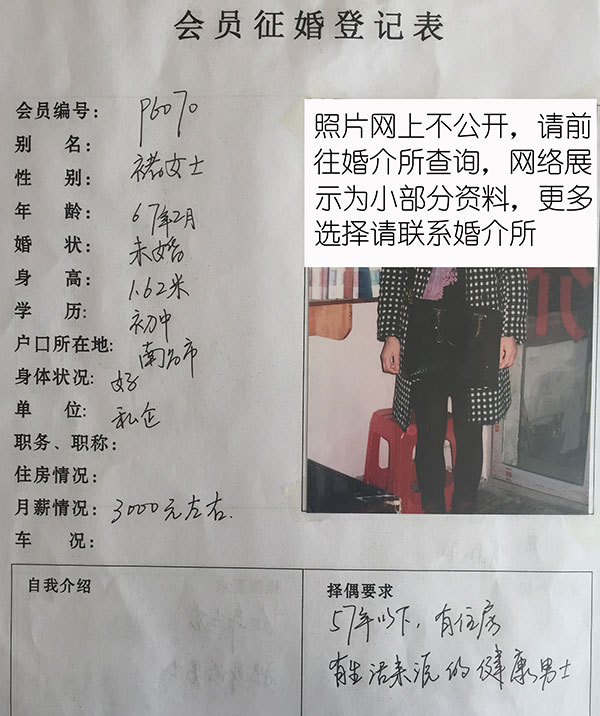 会员征婚登记表
会员编号: PG070
别 名:
性 别: 褚女士
年 龄: 67年2月
婚 状: 未婚
身 高: 1.62米
学 历: 初中
户口所在地: 南昌市
身体状况: 好
单 位: 私企
职务、职称:
住房情况:
月薪情况: 3000元左右.
车 况:
照片网上不公开，请前
往婚介所查询，网络展
示为小部分资料，更多
选择请联系婚介所
自我介绍
择偶要求
57年以下，有住房
有生活来源的健康男士